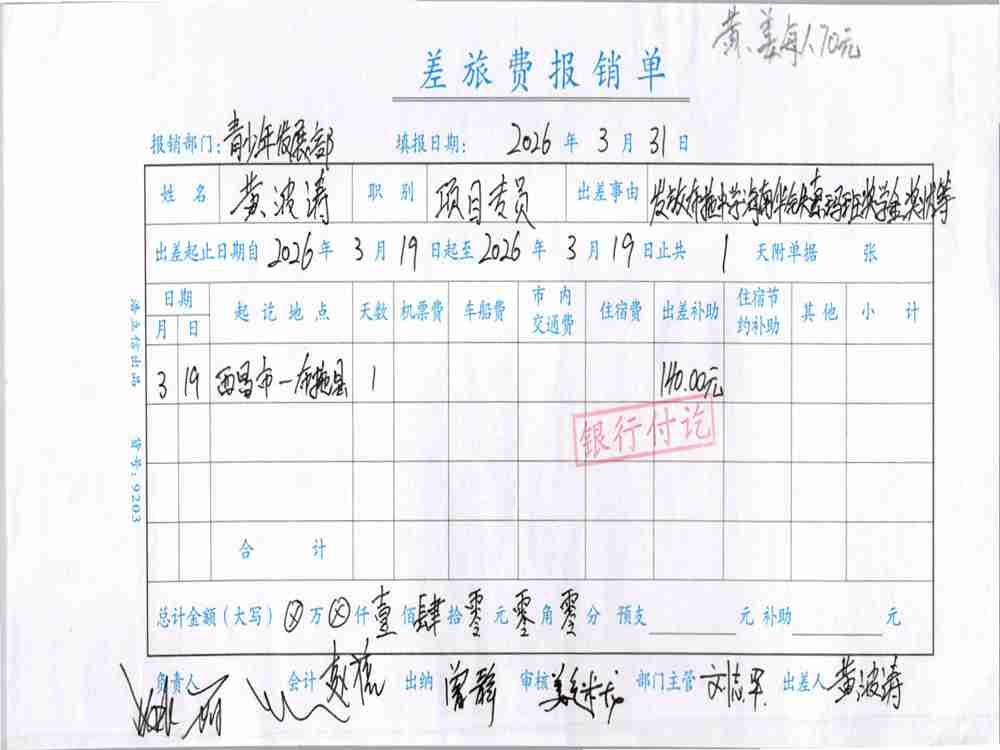 黄、姜每人70元
差旅费报销单
报销部门：青少年发展部 填报日期： 2026 年 3 月 31 日
姓名 黄波涛 职别 项目专员 出差事由 发放布拖中学海南华 班奖学金
出差起止日期自 2026 年 3 月 19 日起至 2026 年 3 月 19 日止共 1 天附单据 张
日期 起讫地点 天数 机票费 车船费 市内交通费 住宿费 出差补助 住宿节约补助 其他 小计
月 日
3 19 西昌市—布拖县 1 140.00元
银行付讫
合计
总计金额（大写）⊗万⊗仟壹佰肆拾零元零角零分 预支 元 补助 元
负责人 会计 出纳 曾静 审核 部门主管 刘志平 出差人 黄波涛
货号：9203